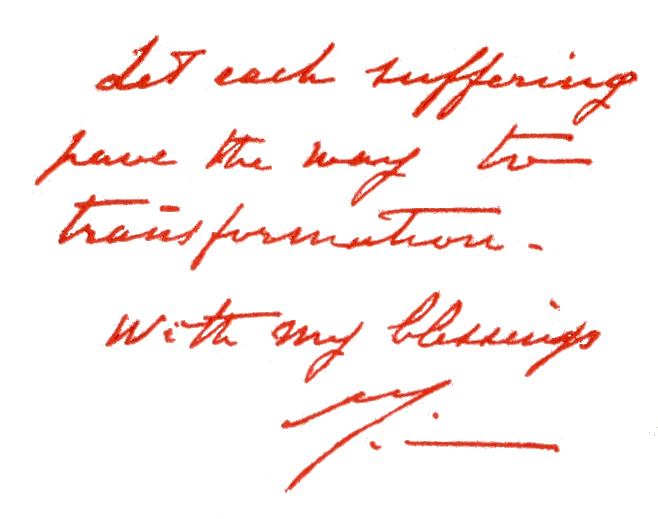 Let each suffering
pave the way to
transformation -
With my blessings